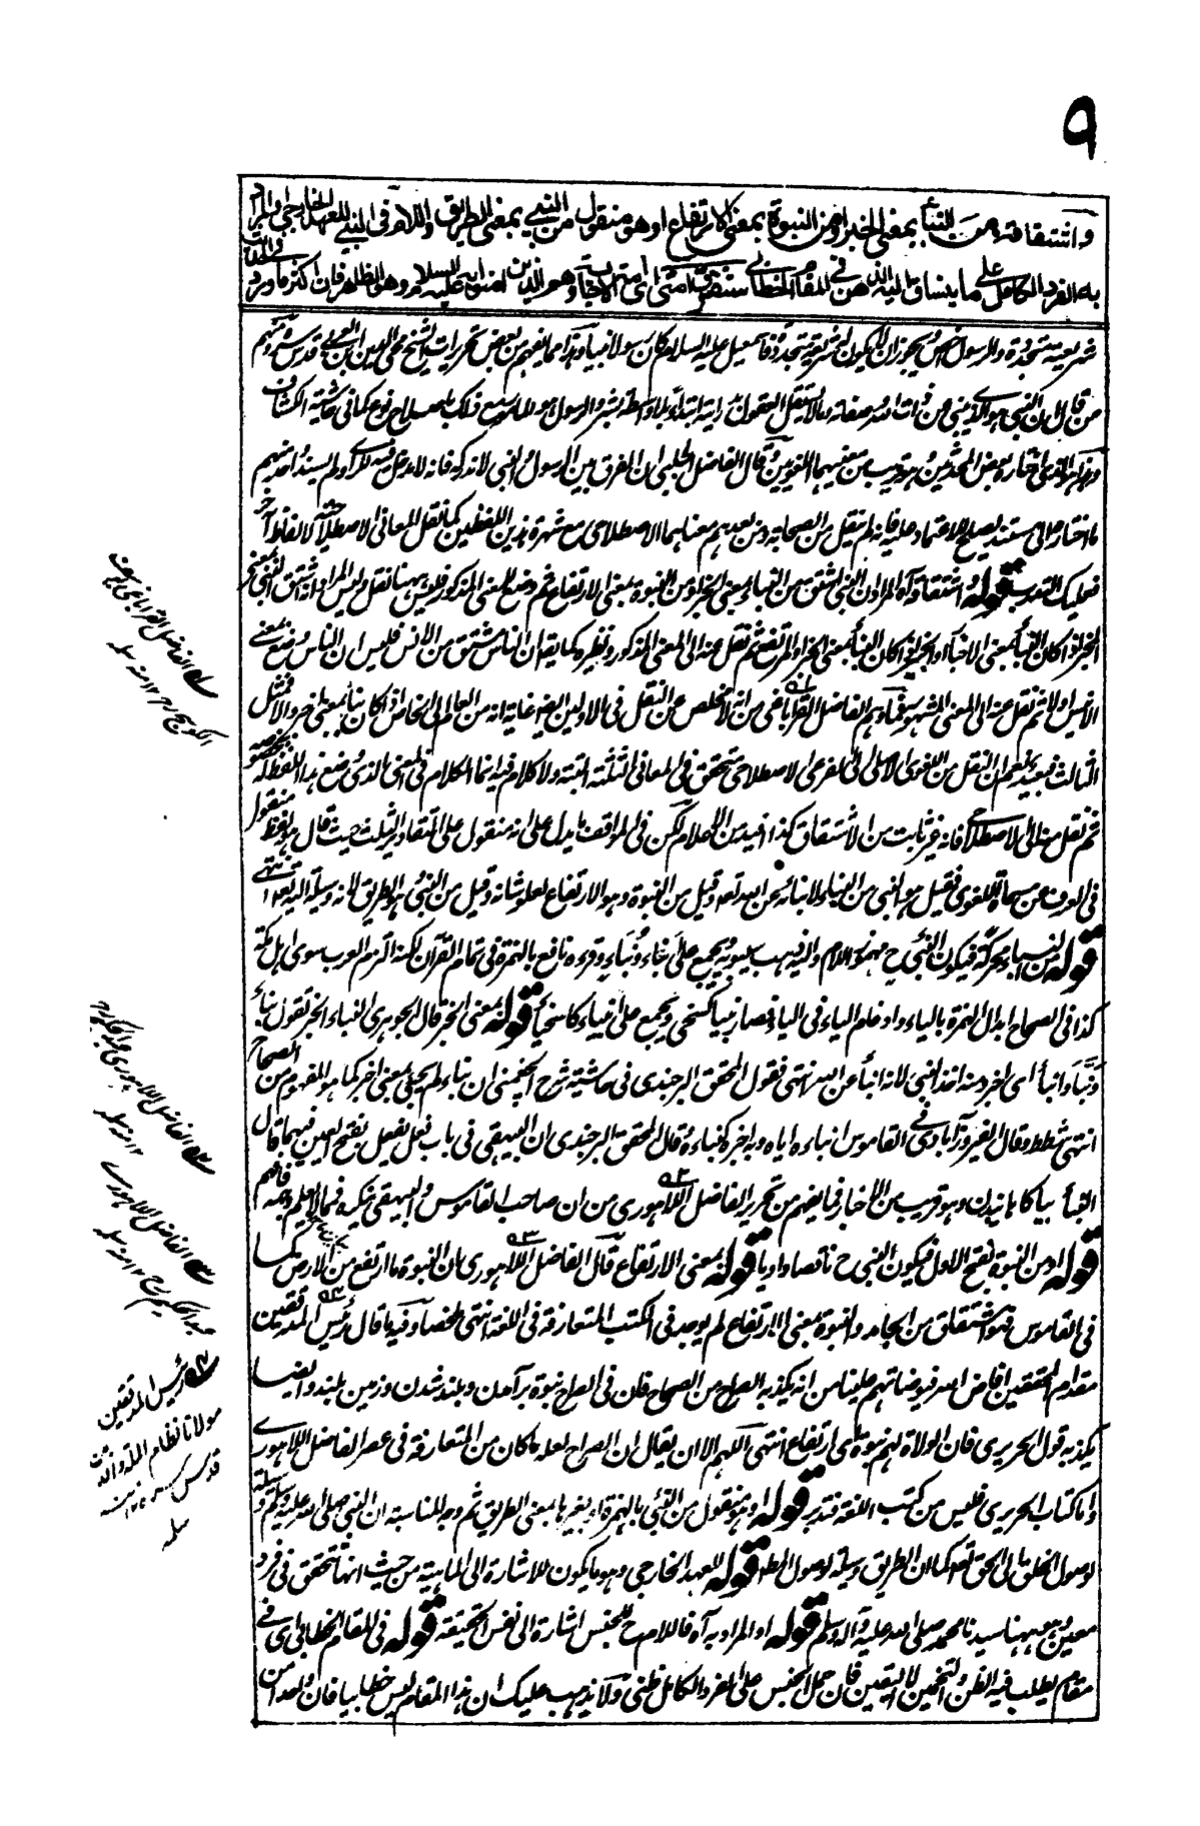 ٩
واشتقاقه من النبأ بمعنى الخبر او من النبوة بمعنى الارتفاع او هو منقول من النبي بمعنى الطريق واللام في النبي للعهد الخارجي او المراد
به الفرد الكامل على ما ينساق اليه الذهن في المقام الخطابي
شريعته متجددة والرسول اعم ويجوز ان لا يكون له شريعة متجددة فاسمعيل عليه السلام كان رسولا نبيا وهذا مما يفهم من بعض تحريرات الشيخ محي الدين ابن العربي قدس سره ومنهم
من قال ان النبي هو الذي ينبي عن ذات الله وصفاته وما لا يستقل العقول بدرايته ابتداء بلا واسطة بشر والرسول هو المأمور مع ذلك باصلاح نوع كما في حاشية الكشاف
اختاره بعض المحدثين وهو قريب من معنييهما اللغويين وقال الفاضل الچلپي ان الفرق بين الرسول والنبي لا ندركه فانه لا مدخل فيه للرأي ولم يسند احد منهم
ما اختاره الى مستند يصلح للاعتماد عليه فانه لم ينقل من الصحابة ومن بعدهم معناهما الاصطلاحي مع شهرة هذين اللفظين كما نقل المعاني الاصطلاحية لالفاظ آخر
فعليك التدبر قوله واشتقاقه آه المراد ان النبي اشتق من النبأ بمعنى الخبر او من النبوة بمعنى الارتفاع ثم وضع للمعنى المذكور فليس ههنا نقل وليس المراد انه اشتق النبي بمعنى
المخبر لو كان النبأ بمعنى الاخبار والخبر لو كان النبأ بمعنى الخبر او المرتفع ثم نقل عنه الى المعنى المذكور ونظيره كما يقال ان الناس مشتق من الانس فليس ان الناس وضع بمعنى
الانيس اولا ثم نقل عنه الى المعنى المشهور فما وهم الفاضل القراباغي من انه لا مخلص عن النقل في الاولين ايضا غاية انه من العام الى الخاص اذا كان نبأ بمعنى اخبر والامثل
الثالث فبعيد نعم ان النقل من اللغوي الاصلي الى الفرعي الاصطلاحي متحقق في المعاني الثلثة البتة ولا كلام فيه انما الكلام في المعنى الذي وضع هذا اللفظ له بخصوصه
ثم نقل منه الى الاصطلاحي فانه غير ثابت من الاشتقاق كذا افيد من الاعلام لكن في المواقف ما يدل على انه منقول على التقادير الثلث حيث قال هو لفظ منقول
في العرف عن مسماه اللغوي فقيل هو النبي من النباء لانبائه عن الله تعالى وقيل من النبوة وهو الارتفاع لعلو شانه وقيل من النبي وهو الطريق لانه وسيلة اليه تعالى انتهى
قوله من النباء محركة فيكون النبي ح مهموز اللام واليه ذهب سيبويه ويجمع على نباء ونبآء وقرءه نافع بالهمزة في تمام القرآن لكنه التزم العرب سوى اهل مكة
كذا في الصحاح ابدال الهمزة بالياء وادغام الياء في الياء فصار نبيا كسخي ويجمع على انبياء كاسخياء قوله بمعنى الخبر قال الجوهري النباء الخبر تقول نبأ
ونبأ وانبأ اي اخبر ومنه اخذ النبي لانه انبأ عن الله انتهى فقول المحقق البرجندي في حاشية شرح الچغمني ان نباء لم يجئ بمعنى اخبر كما هو المفهوم من الصحاح
انتهى شطط وقال الفيروزآبادي في القاموس انباءه اياه وبه اخبره كنباءه وقال المحقق البرجندي ان البيهقي في باب فعل يفعل بفتح العين فيهما قال
النبأ بيا كاهانيدن وهو قريب من الاخبار فما يفهم من تحرير الفاضل اللاهوري من ان صاحب القاموس والبيهقي فما لا اعلم وجهه فافهم
قوله او من النبوة بفتح الاول فيكون النبي ح ناقصا واويا قوله بمعنى الارتفاع قال الفاضل اللاهوري ان النبوة ما ارتفع من الارض كما
في القاموس فهو اشتقاق من الجامد والنبوة بمعنى الارتفاع لم يوجد في الكتب المتعارفة في اللغة انتهى ملخصا وفيه ما قال رئيس المدققين
مقدام المحققين افاض الله فيوضاتهم علينا من انه يكذبه الصراح من الصحاح فان في الصراح نبوة برآمدن وبلند شدن وزمين بلند وايضا
يكذبه قول الحريري فان الولاة لهم نبوة اي ارتفاع انتهى اللهم الا ان يقال ان الصراح لعله ما كان من المتعارفة في عصر الفاضل اللاهوري
واما كتاب الحريري فليس من كتب اللغة فتدبر قوله او هو منقول من النبي بالهمزة او بغيرها بمعنى الطريق ثم وجه المناسبة ان النبي صلى الله عليه وسلم وسيلة
لوصول الخلق الى الحق تعالى كما ان الطريق وسيلة لوصول المطلوب قوله للعهد الخارجي وهو ما يكون للاشارة الى الماهية من حيث انها تتحقق في فرد
معين وهو ههنا سيدنا محمد صلى الله عليه وآله وسلم قوله او المراد به آه فاللام ح للجنس اشارة الى نفس الحقيقة قوله في المقام الخطابي اي في
مقام يطلب فيه الظن والتخمين لا اليقين فان حمل الجنس على الفرد الكامل ظني ولا يذهب عليك ان هذا المقام ليس خطابيا فان
الفاضل القراباغي يوسف
الكوسج رح ١٢ منه سلمه
الفاضل اللاهوري
١٢ منه سلمه
الفاضل اللاهوري
عبد الحكيم رح ١٢ منه سلمه
رئيس المدققين
مولانا نظام الملة والدين
قدس سره ١٢ منه
سلمه